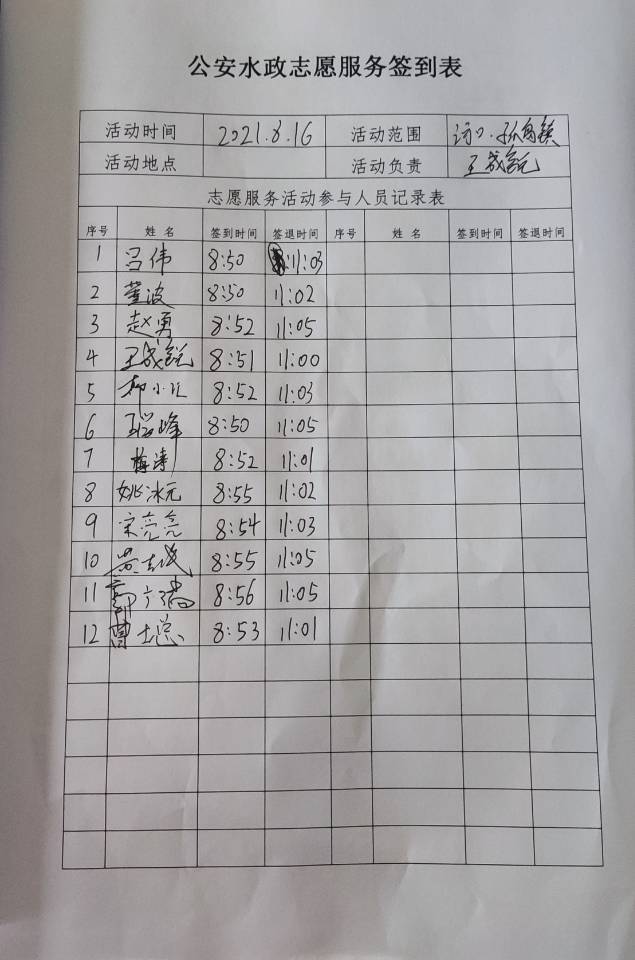 公安水政志愿服务签到表
活动时间 2021.8.16 活动范围 河口.孤岛镇
活动地点 活动负责 王成锐
志愿服务活动参与人员记录表
序号 姓名 签到时间 签退时间 序号 姓名 签到时间 签退时间
1 吕伟 8:50 11:03
2 董波 8:50 11:02
3 赵勇 8:52 11:05
4 王成锐 8:51 11:00
5 柳小 8:52 11:03
6 8:50 11:05
7 梅涛 8:52 11:01
8 姚冰元 8:55 11:02
9 宋亮亮 8:54 11:03
10 8:55 11:05
11 8:56 11:05
12 8:53 11:01